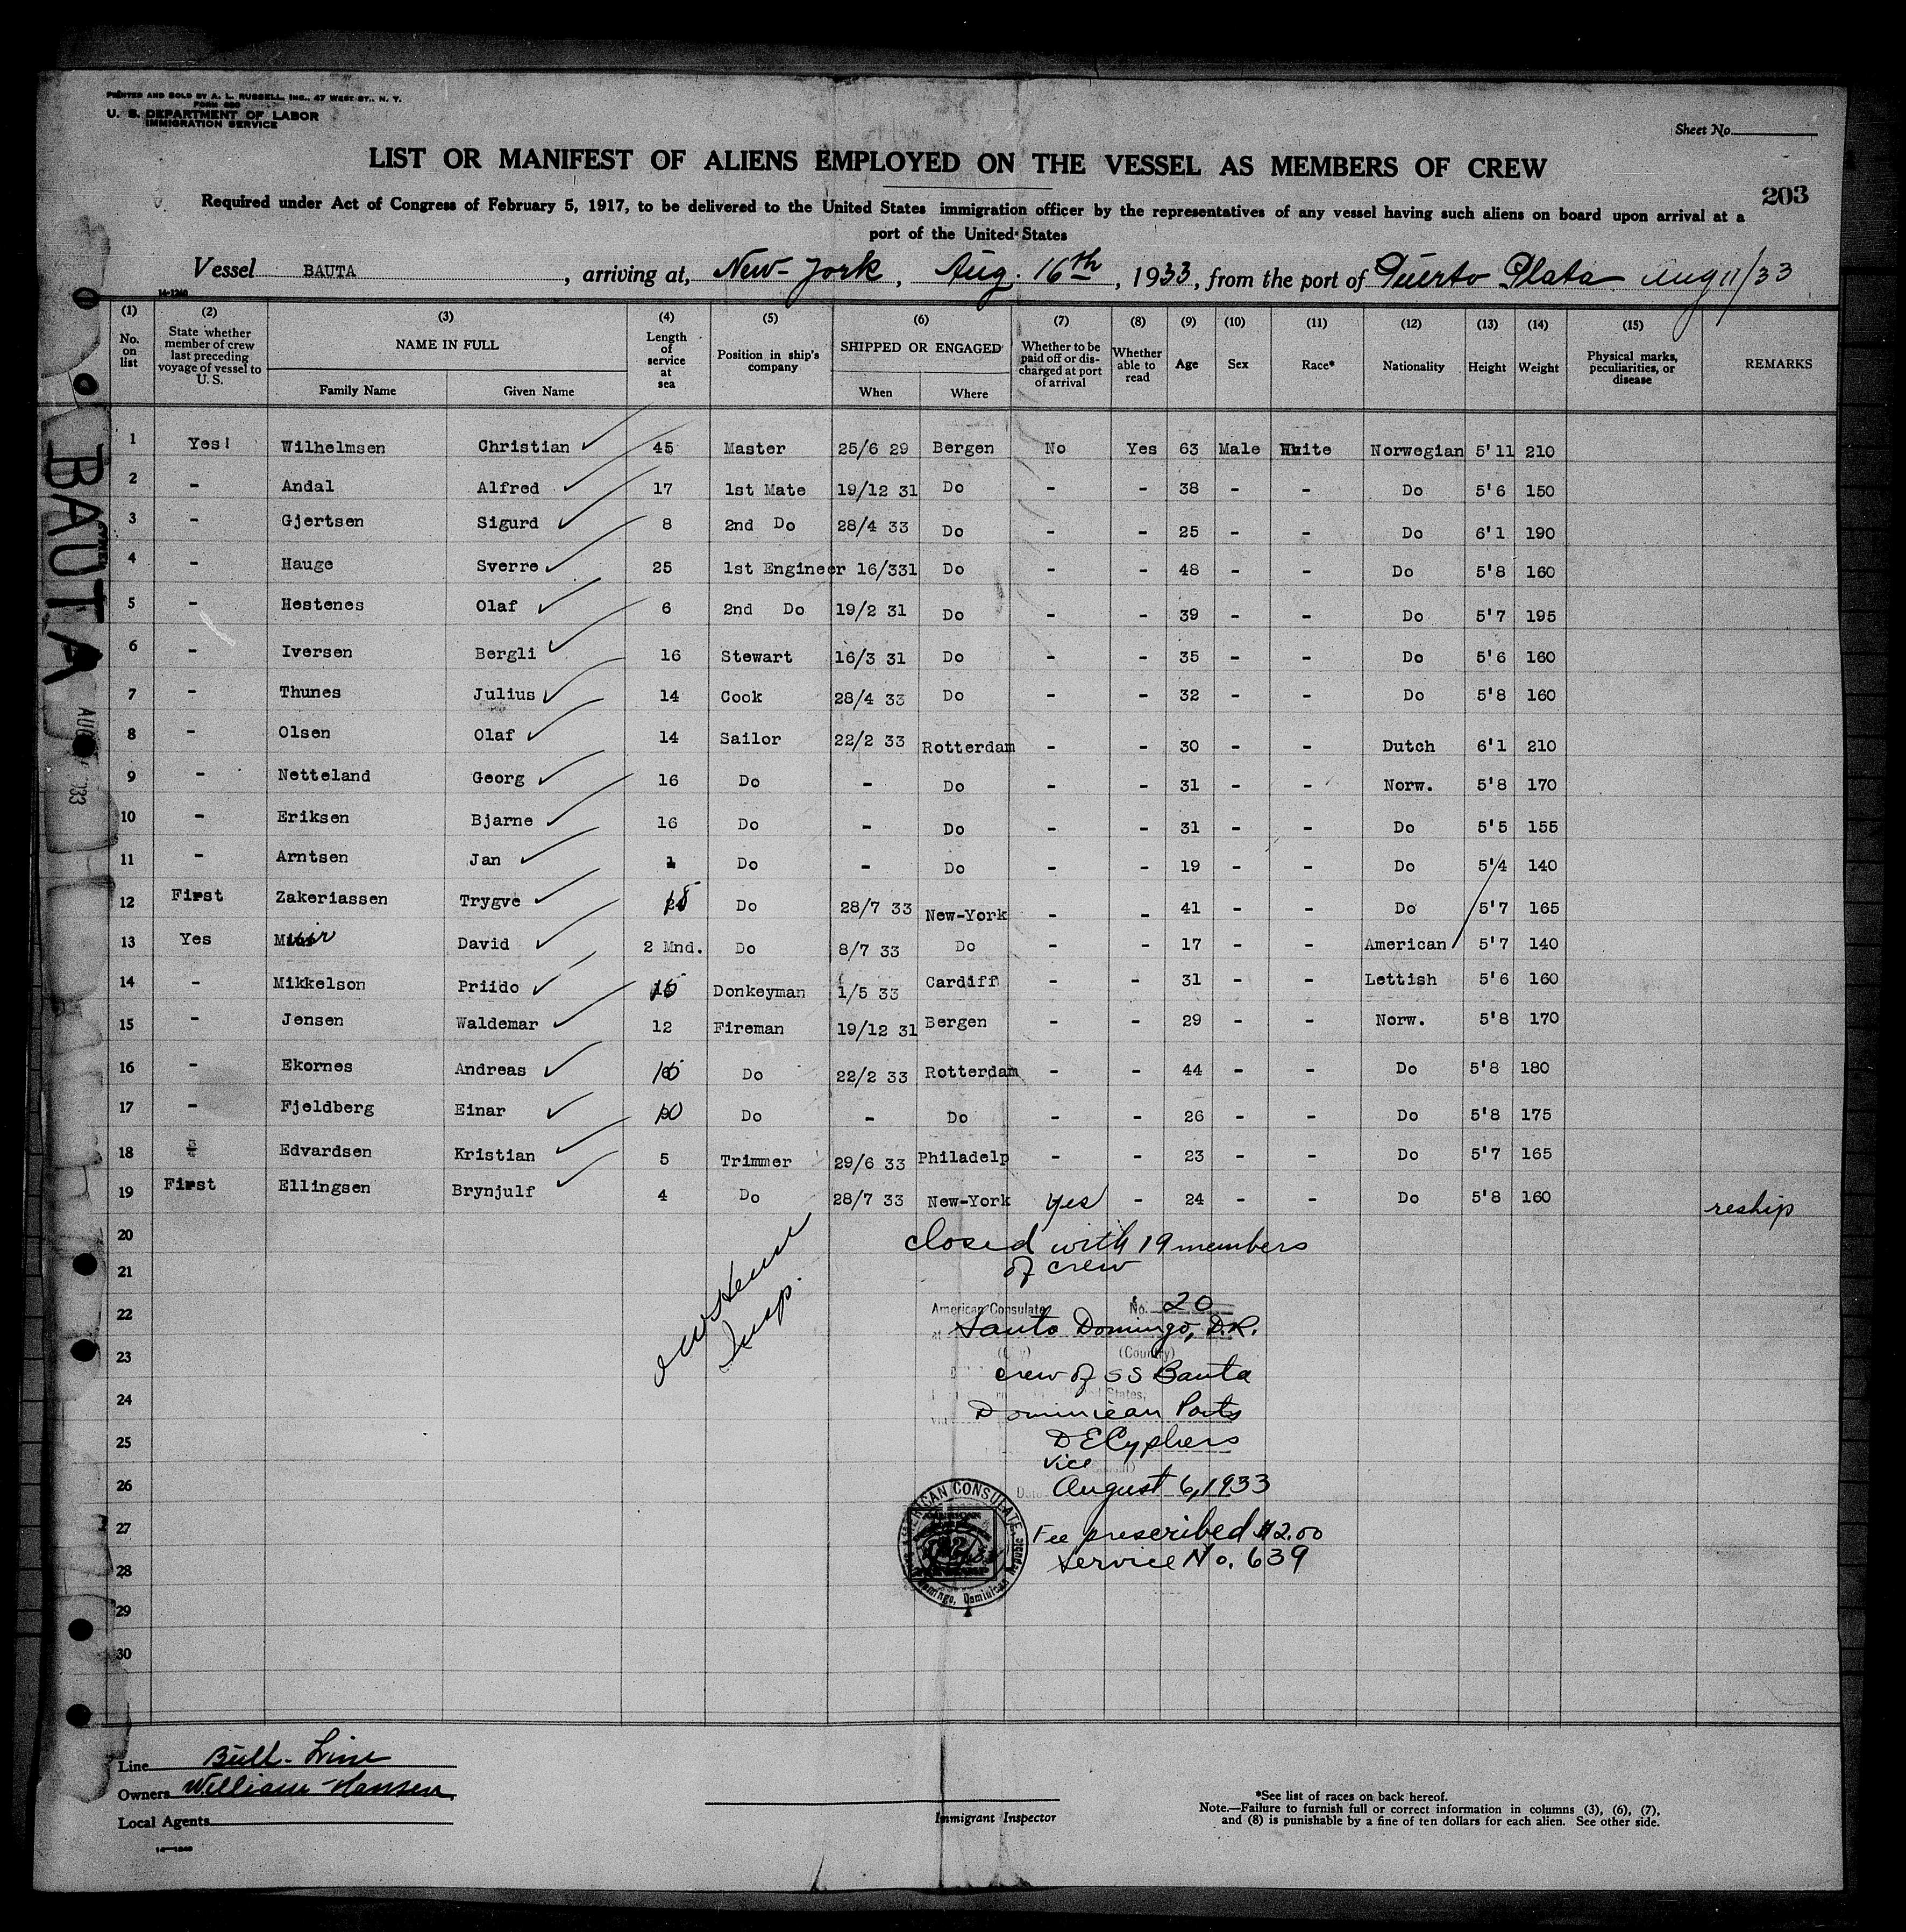 PRINTED AND SOLD BY A. L. RUSSELL, INC., 47 WEST ST., N. Y.
FORM 680
U. S. DEPARTMENT OF LABOR
IMMIGRATION SERVICE
Sheet No.
LIST OR MANIFEST OF ALIENS EMPLOYED ON THE VESSEL AS MEMBERS OF CREW
203
Required under Act of Congress of February 5, 1917, to be delivered to the United States immigration officer by the representatives of any vessel having such aliens on board upon arrival at a
port of the United States
Vessel BAUTA, arriving at, New-York, Aug. 16th, 1933, from the port of Puerto Plata Aug 11/33
14-1240
(1) (2) (3) (4) (5) (6) (7) (8) (9) (10) (11) (12) (13) (14) (15)
No. on list State whether member of crew last preceding voyage of vessel to U. S. NAME IN FULL Family Name Given Name Length of service at sea Position in ship's company SHIPPED OR ENGAGED When Where Whether to be paid off or discharged at port of arrival Whether able to read Age Sex Race* Nationality Height Weight Physical marks, peculiarities, or disease REMARKS
1 Yes! Wilhelmsen Christian 45 Master 25/6 29 Bergen No Yes 63 Male White Norwegian 5'11 210
2 - Andal Alfred 17 1st Mate 19/12 31 Do - - 38 - - Do 5'6 150
3 - Gjertsen Sigurd 8 2nd Do 28/4 33 Do - - 25 - - Do 6'1 190
4 - Hauge Sverre 25 1st Engineer 16/331 Do - - 48 - - Do 5'8 160
5 - Hestenes Olaf 6 2nd Do 19/2 31 Do - - 39 - - Do 5'7 195
6 - Iversen Bergli 16 Stewart 16/3 31 Do - - 35 - - Do 5'6 160
7 - Thunes Julius 14 Cook 28/4 33 Do - - 32 - - Do 5'8 160
8 - Olsen Olaf 14 Sailor 22/2 33 Rotterdam - - 30 - - Dutch 6'1 210
9 - Netteland Georg 16 Do - Do - - 31 - - Norw. 5'8 170
10 - Eriksen Bjarne 16 Do - Do - - 31 - - Do 5'5 155
11 - Arntsen Jan 1 Do - Do - - 19 - - Do 5'4 140
12 First Zakeriassen Trygve Do 28/7 33 New-York - - 41 - - Do 5'7 165
13 Yes David 2 Mnd. Do 8/7 33 Do - - 17 - - American 5'7 140
14 - Mikkelson Priido Donkeyman 1/5 33 Cardiff - - 31 - - Lettish 5'6 160
15 - Jensen Waldemar 12 Fireman 19/12 31 Bergen - - 29 - - Norw. 5'8 170
16 - Ekornes Andreas Do 22/2 33 Rotterdam - - 44 - - Do 5'8 180
17 - Fjeldberg Einar 10 Do - Do - - 26 - - Do 5'8 175
18 Edvardsen Kristian 5 Trimmer 29/6 33 Philadelp - - 23 - - Do 5'7 165
19 First Ellingsen Brynjulf 4 Do 28/7 33 New-York Yes - 24 - - Do 5'8 160 reship
20 closed with 19 members
21 of crew
22 American Consulate No. 20
Santo Domingo, D.R.
23 (Country)
crew of SS Bauta
24 States,
Dominican Ports
25 D E Cyphers
Vice
26 August 6, 1933
27 Fee prescribed $2.00
28 Service No. 639
29
30
Insp.
AMERICAN CONSULATE
Domingo, Dominican Republic
BAUTA
AUG '33
Line Bull-Line
Owners William Hansen.
Local Agents
14-1240
Immigrant Inspector
*See list of races on back hereof.
Note.—Failure to furnish full or correct information in columns (3), (6), (7),
and (8) is punishable by a fine of ten dollars for each alien. See other side.